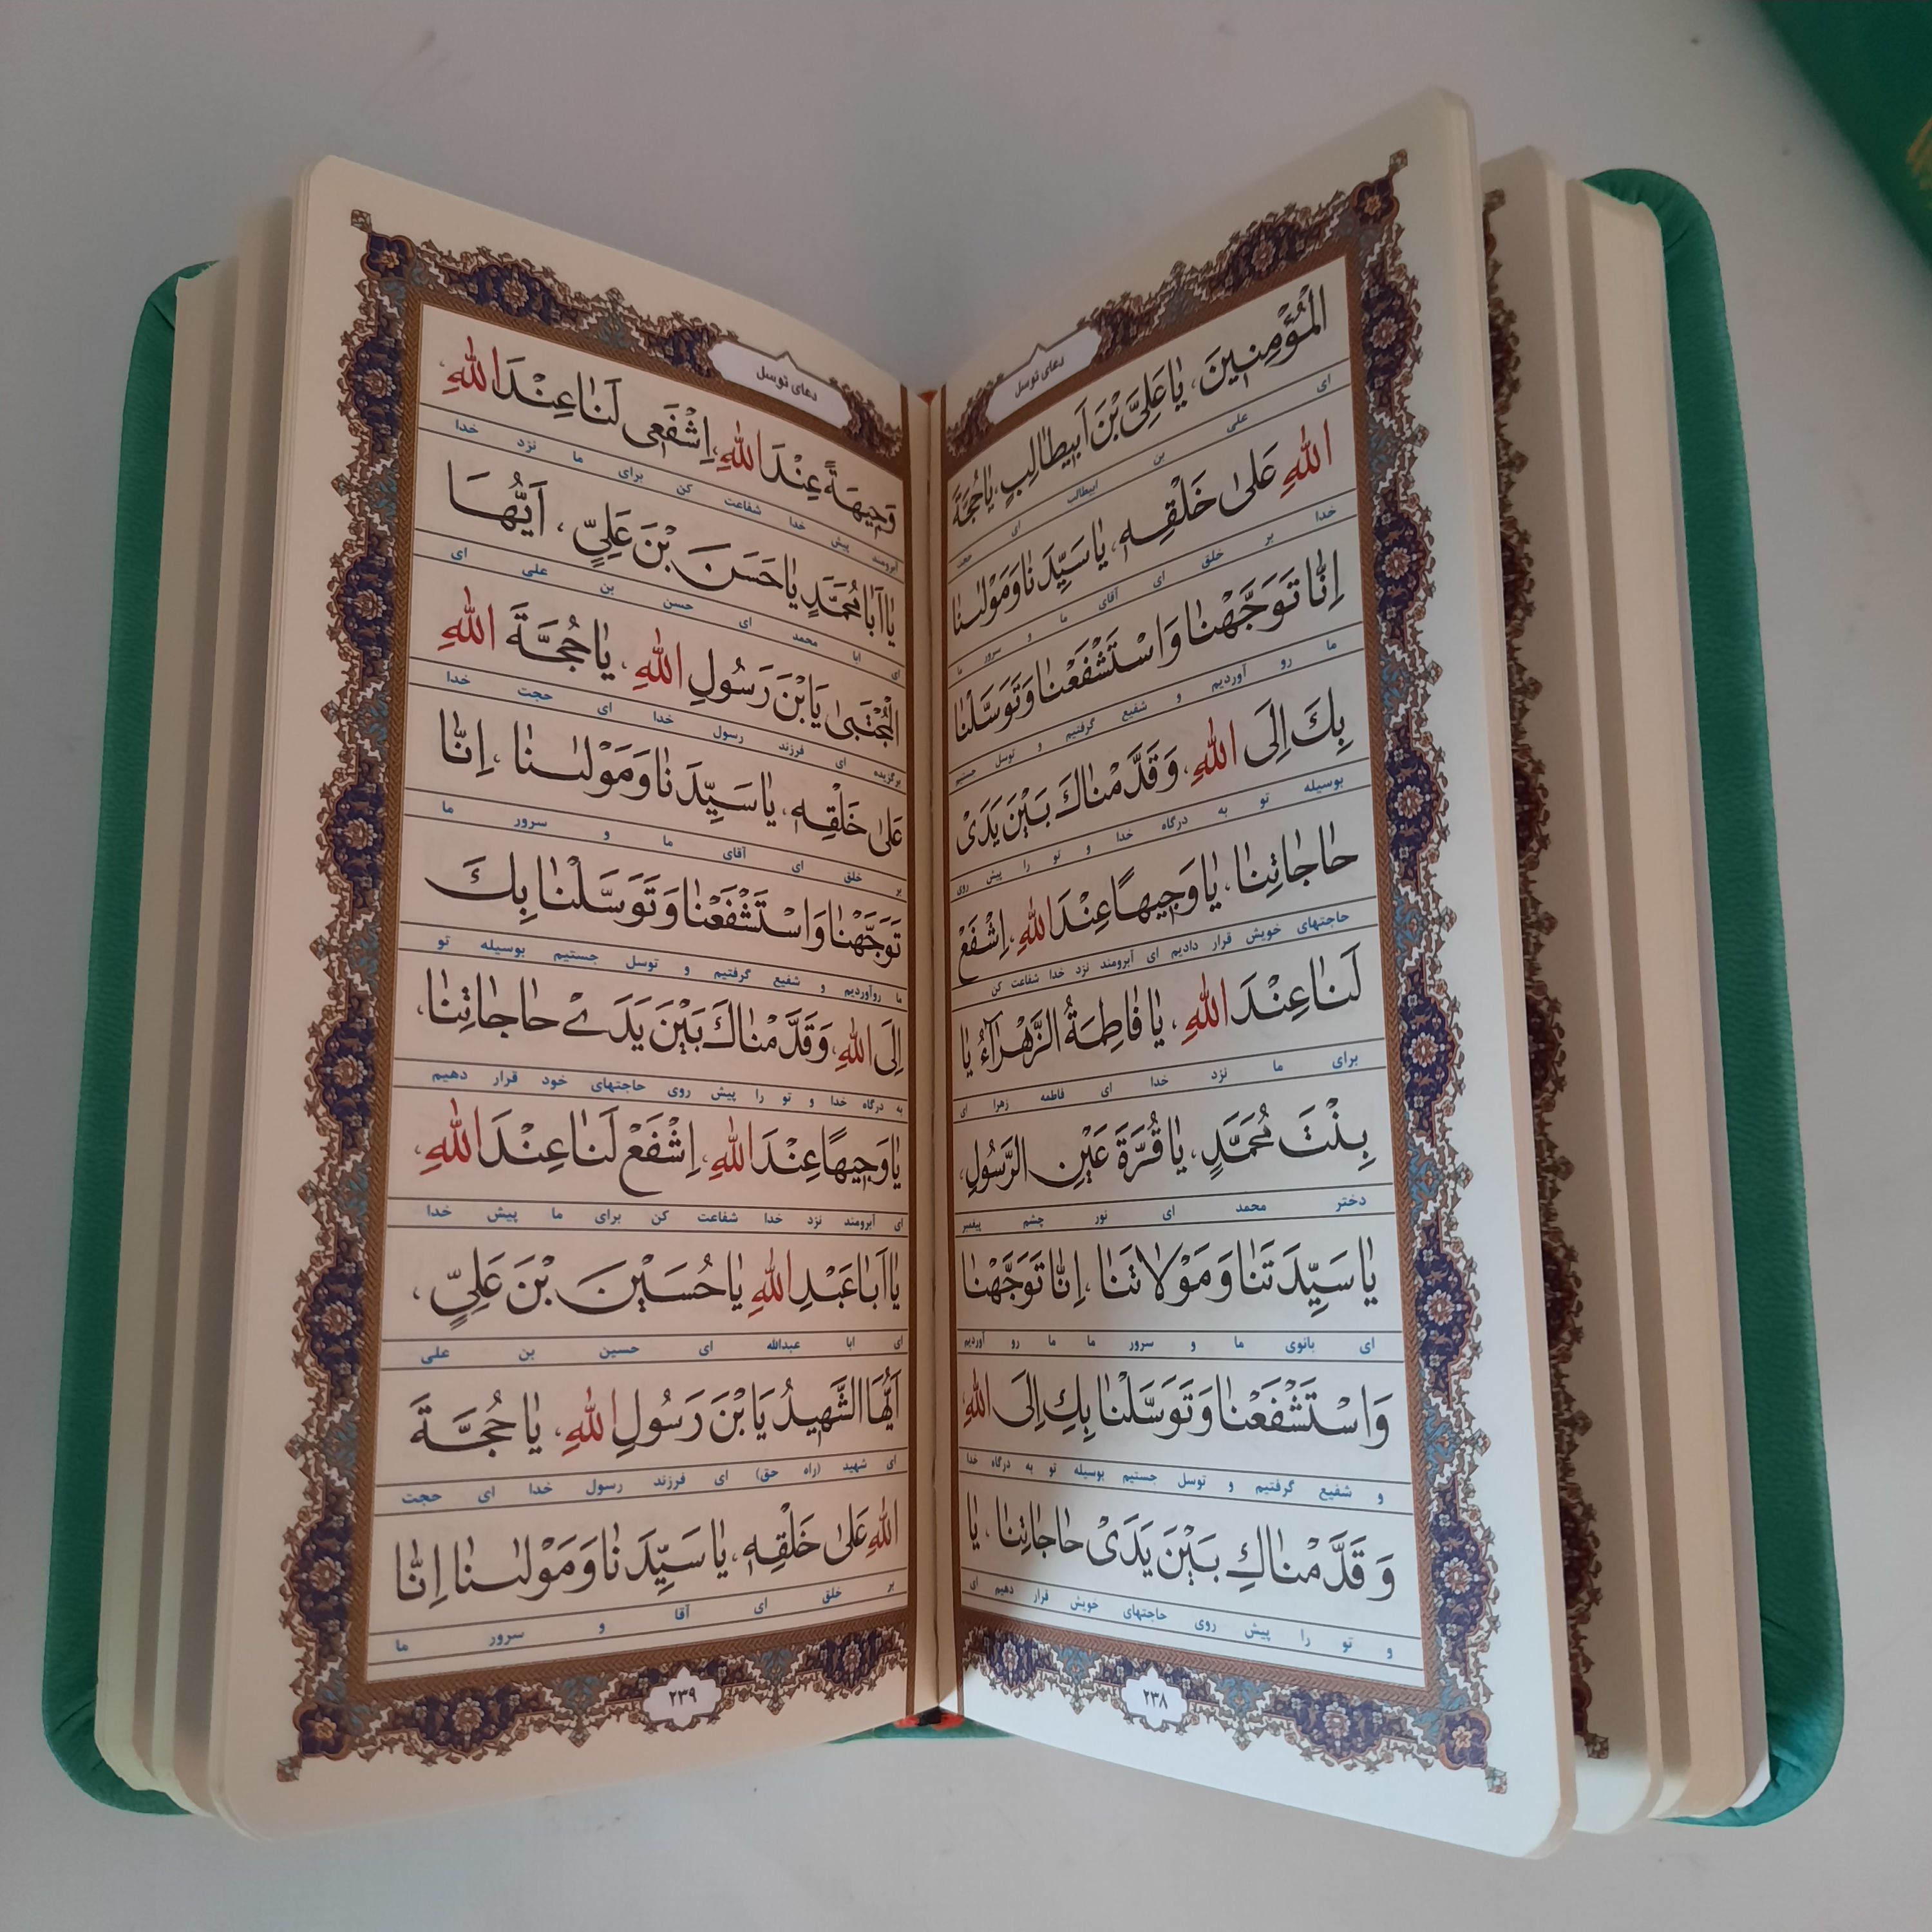 دعای توسل
الْمُؤْمِنِينَ، يٰا عَلِىَّ بْنَ اَبيطٰالِبٍ، يٰا حُجَّةَ
ای علی بن ابیطالب ای حجت
اللهِ عَلىٰ خَلْقِهِ، يٰا سَيِّدَنٰا وَمَوْلٰينٰا
خدا بر خلق ای آقای ما و سرور ما
اِنّٰا تَوَجَّهْنٰا وَاسْتَشْفَعْنٰا وَتَوَسَّلْنٰا
ما رو آوردیم و شفیع گرفتیم و توسل جستیم
بِكَ اِلَى اللهِ، وَقَدَّمْنٰاكَ بَيْنَ يَدَىْ
بوسیله تو به درگاه خدا و تو را پیش روی
حٰاجٰاتِنٰا، يٰا وَجِيهًا عِنْدَ اللهِ، اِشْفَعْ
حاجتهای خویش قرار دادیم ای آبرومند نزد خدا شفاعت کن
لَنٰا عِنْدَ اللهِ، يٰا فٰاطِمَةُ الزَّهْرٰآءُ يٰا
برای ما نزد خدا ای فاطمه زهرا ای
بِنْتَ مُحَمَّدٍ، يٰا قُرَّةَ عَيْنِ الرَّسُولِ،
دختر محمد ای نور چشم پیغمبر
يٰا سَيِّدَتَنٰا وَمَوْلاتَنٰا، اِنّٰا تَوَجَّهْنٰا
ای بانوی ما و سرور ما ما رو آوردیم
وَاسْتَشْفَعْنٰا وَتَوَسَّلْنٰا بِكِ اِلَى اللهِ،
و شفیع گرفتیم و توسل جستیم بوسیله تو به درگاه خدا
وَقَدَّمْنٰاكِ بَيْنَ يَدَىْ حٰاجٰاتِنٰا، يٰا
و تو را پیش روی حاجتهای خویش قرار دهیم ای
۲۳۸
دعای توسل
وَجِيهَةً عِنْدَ اللهِ، اِشْفَعِى لَنٰا عِنْدَ اللهِ،
آبرومند پیش خدا شفاعت کن برای ما نزد خدا
يٰا اَبٰا مُحَمَّدٍ يٰا حَسَنَ بْنَ عَلِيٍّ، اَيُّهَا
ای ابا محمد ای حسن بن علی ای
الْمُجْتَبىٰ يَا بْنَ رَسُولِ اللهِ، يٰا حُجَّةَ اللهِ
برگزیده ای فرزند رسول خدا ای حجت خدا
عَلىٰ خَلْقِهِ، يٰا سَيِّدَنٰا وَمَوْلٰينٰا، اِنّٰا
بر خلق ای آقای ما و سرور ما
تَوَجَّهْنٰا وَاسْتَشْفَعْنٰا وَتَوَسَّلْنٰا بِكَ
ما روآوردیم و شفیع گرفتیم و توسل جستیم بوسیله تو
اِلَى اللهِ، وَقَدَّمْنٰاكَ بَيْنَ يَدَىْ حٰاجٰاتِنٰا،
به درگاه خدا و تو را پیش روی حاجتهای خود قرار دهیم
يٰا وَجِيهًا عِنْدَ اللهِ، اِشْفَعْ لَنٰا عِنْدَ اللهِ،
ای آبرومند نزد خدا شفاعت کن برای ما پیش خدا
يٰا اَبٰا عَبْدِ اللهِ يٰا حُسَيْنَ بْنَ عَلِيٍّ،
ای ابا عبدالله ای حسین بن علی
اَيُّهَا الشَّهِيدُ يَا بْنَ رَسُولِ اللهِ، يٰا حُجَّةَ
ای شهید (راه حق) ای فرزند رسول خدا ای حجت
اللهِ عَلىٰ خَلْقِهِ، يٰا سَيِّدَنٰا وَمَوْلٰينٰا اِنّٰا
بر خلق ای آقا و سرور ما
۲۳۹